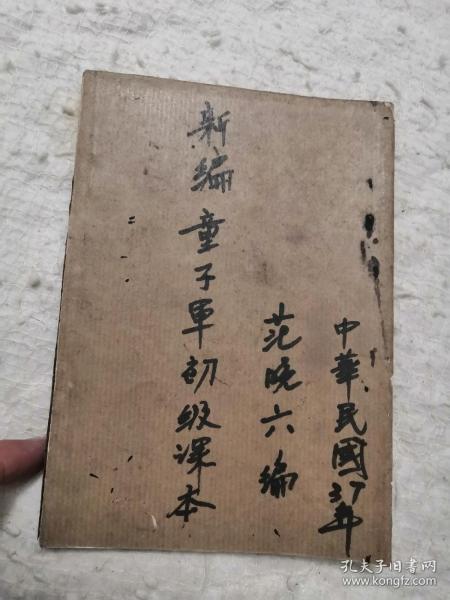 中華民國37年
范晚六编
新编童子军初级课本
孔夫子旧书网
www.kongfz.com